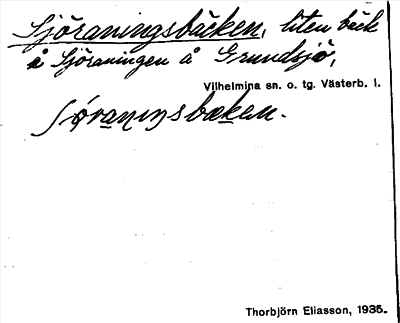 Sjöraningsbäcken, liten bäck
å Sjöraningen å Grundsjö,
Vilhelmina sn. o. tg. Västerb. l.
Sjøranıŋsbæken.
Thorbjörn Eliasson, 1935.